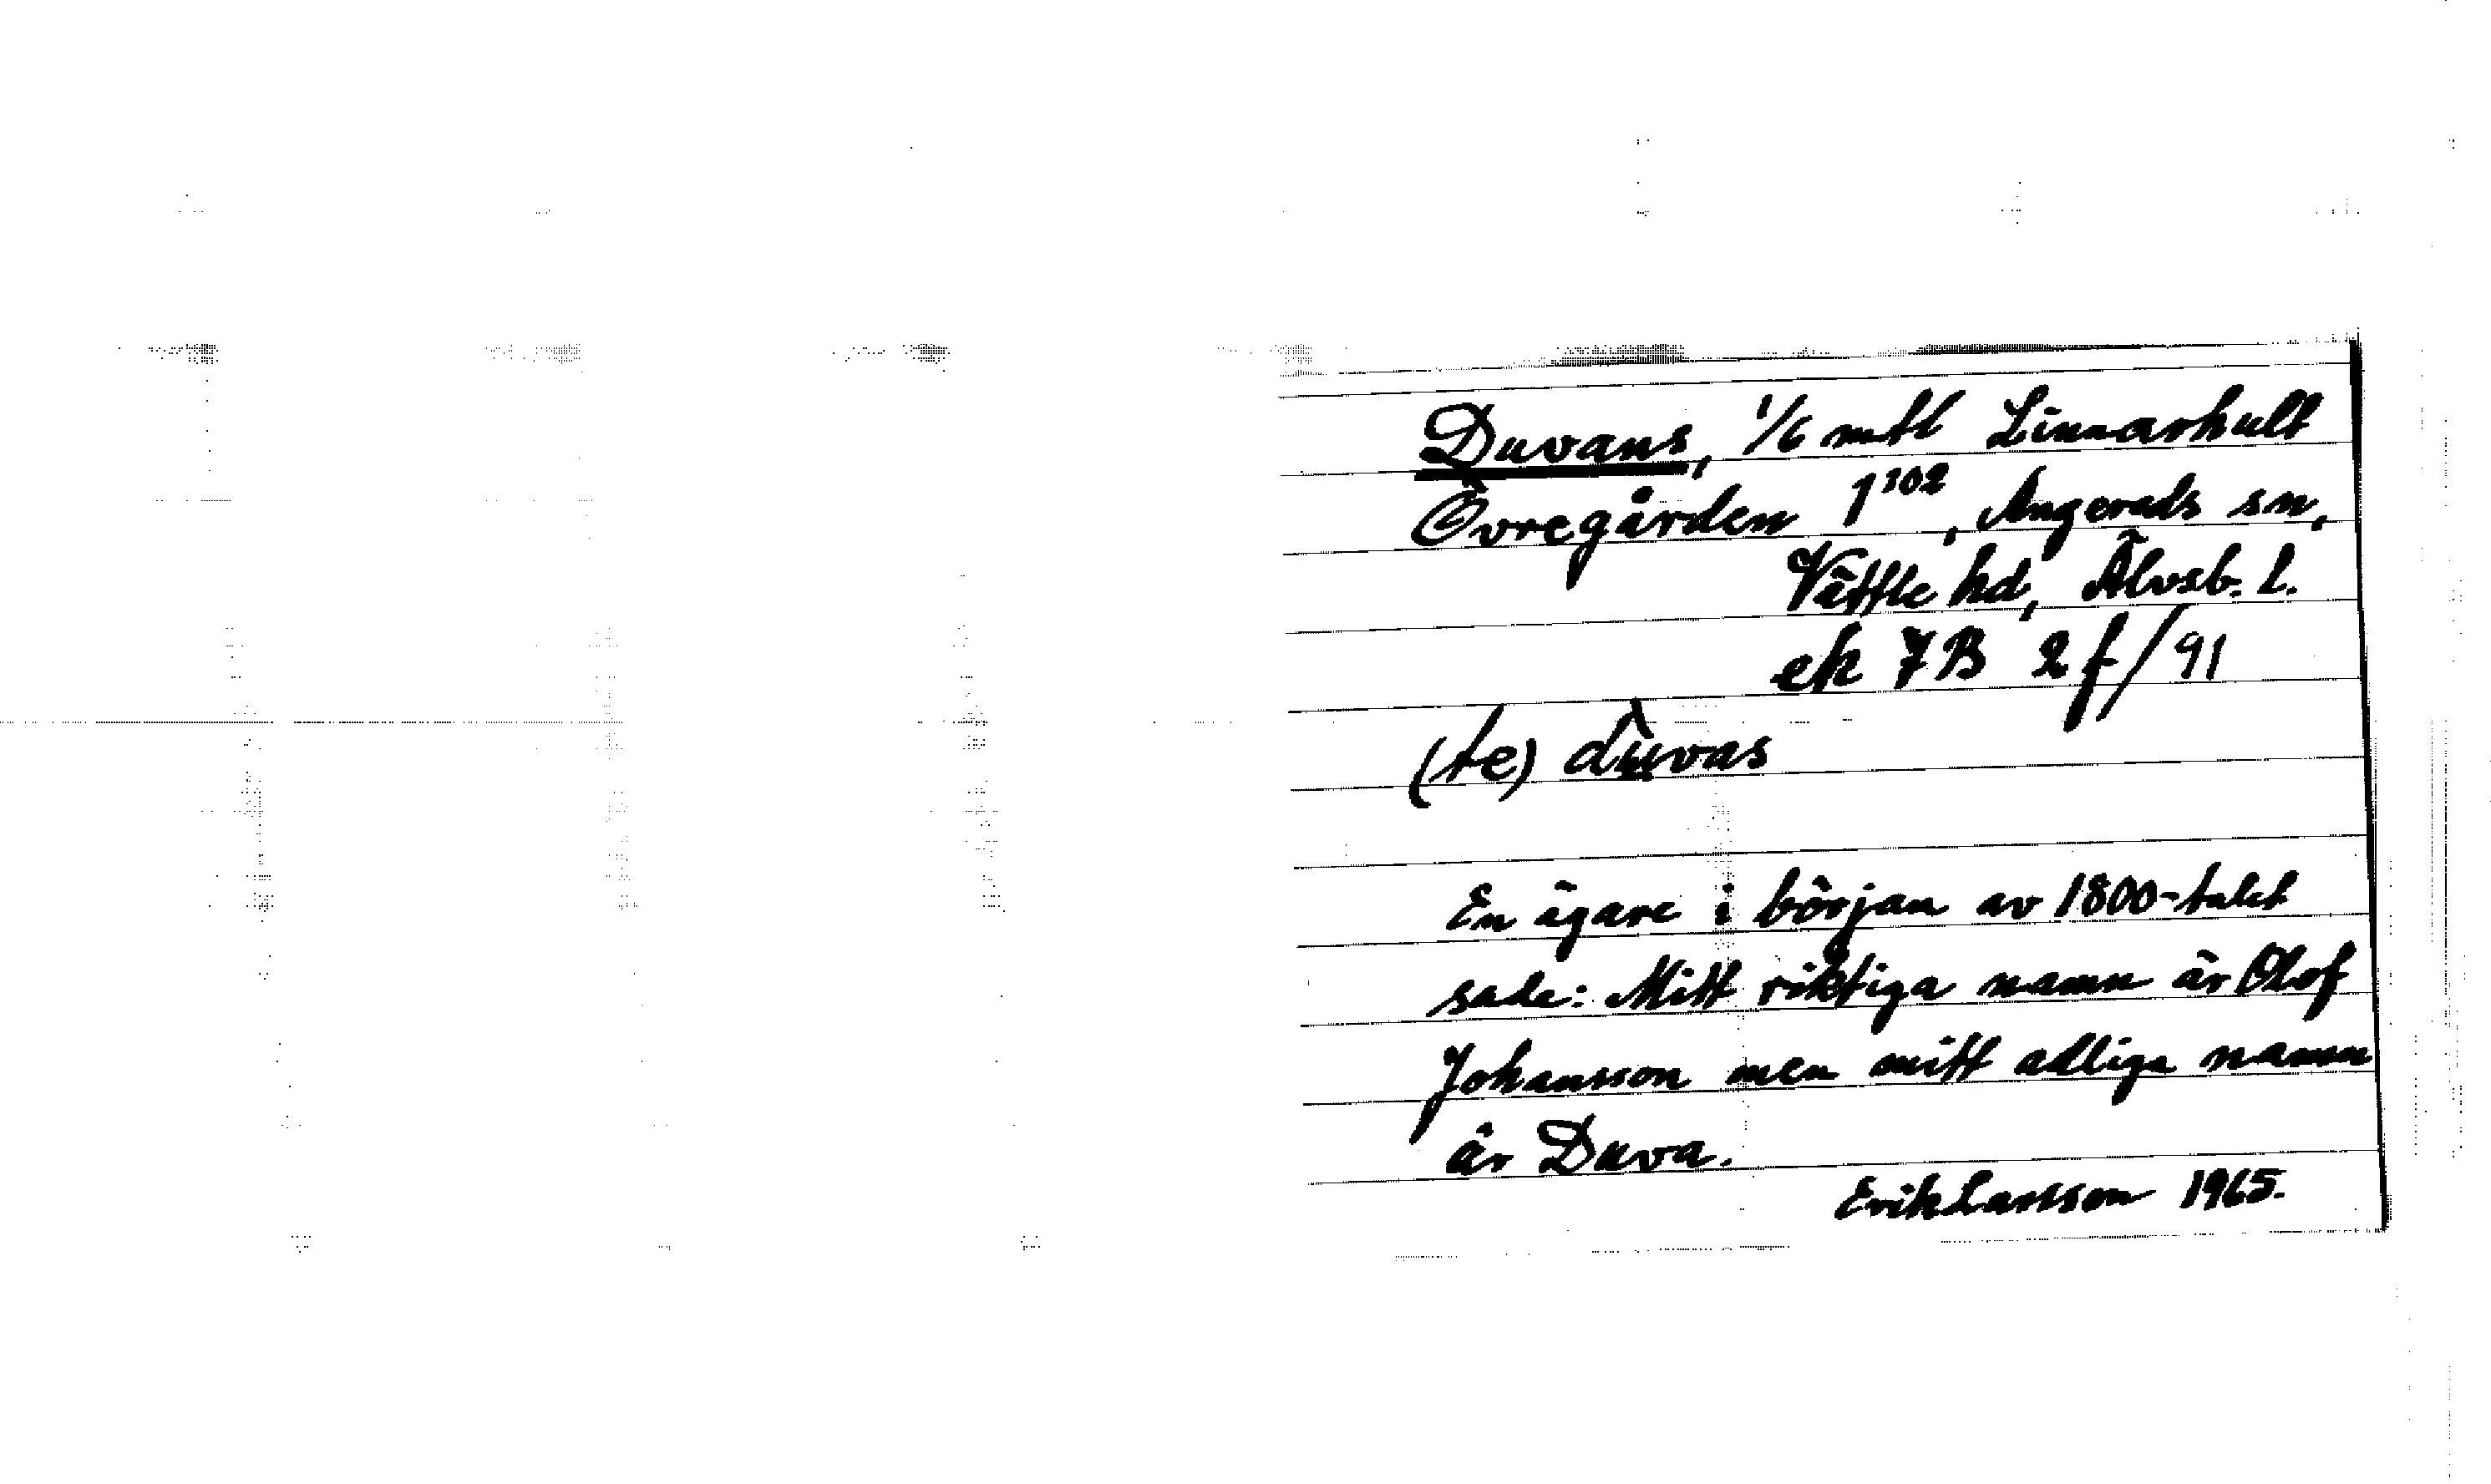 Duvans, 1/6 mtl Linnarhult
Övregården 1¹⁰², Angereds sn,
Vättle hd, Älvsb. l.
ek 7B 2f/91
(te) dùvas
En ägare i början av 1800-talet
sade: Mitt riktiga namn är Olof
Johansson men mitt adliga namn
är Duva.
Erik Larsson 1965.